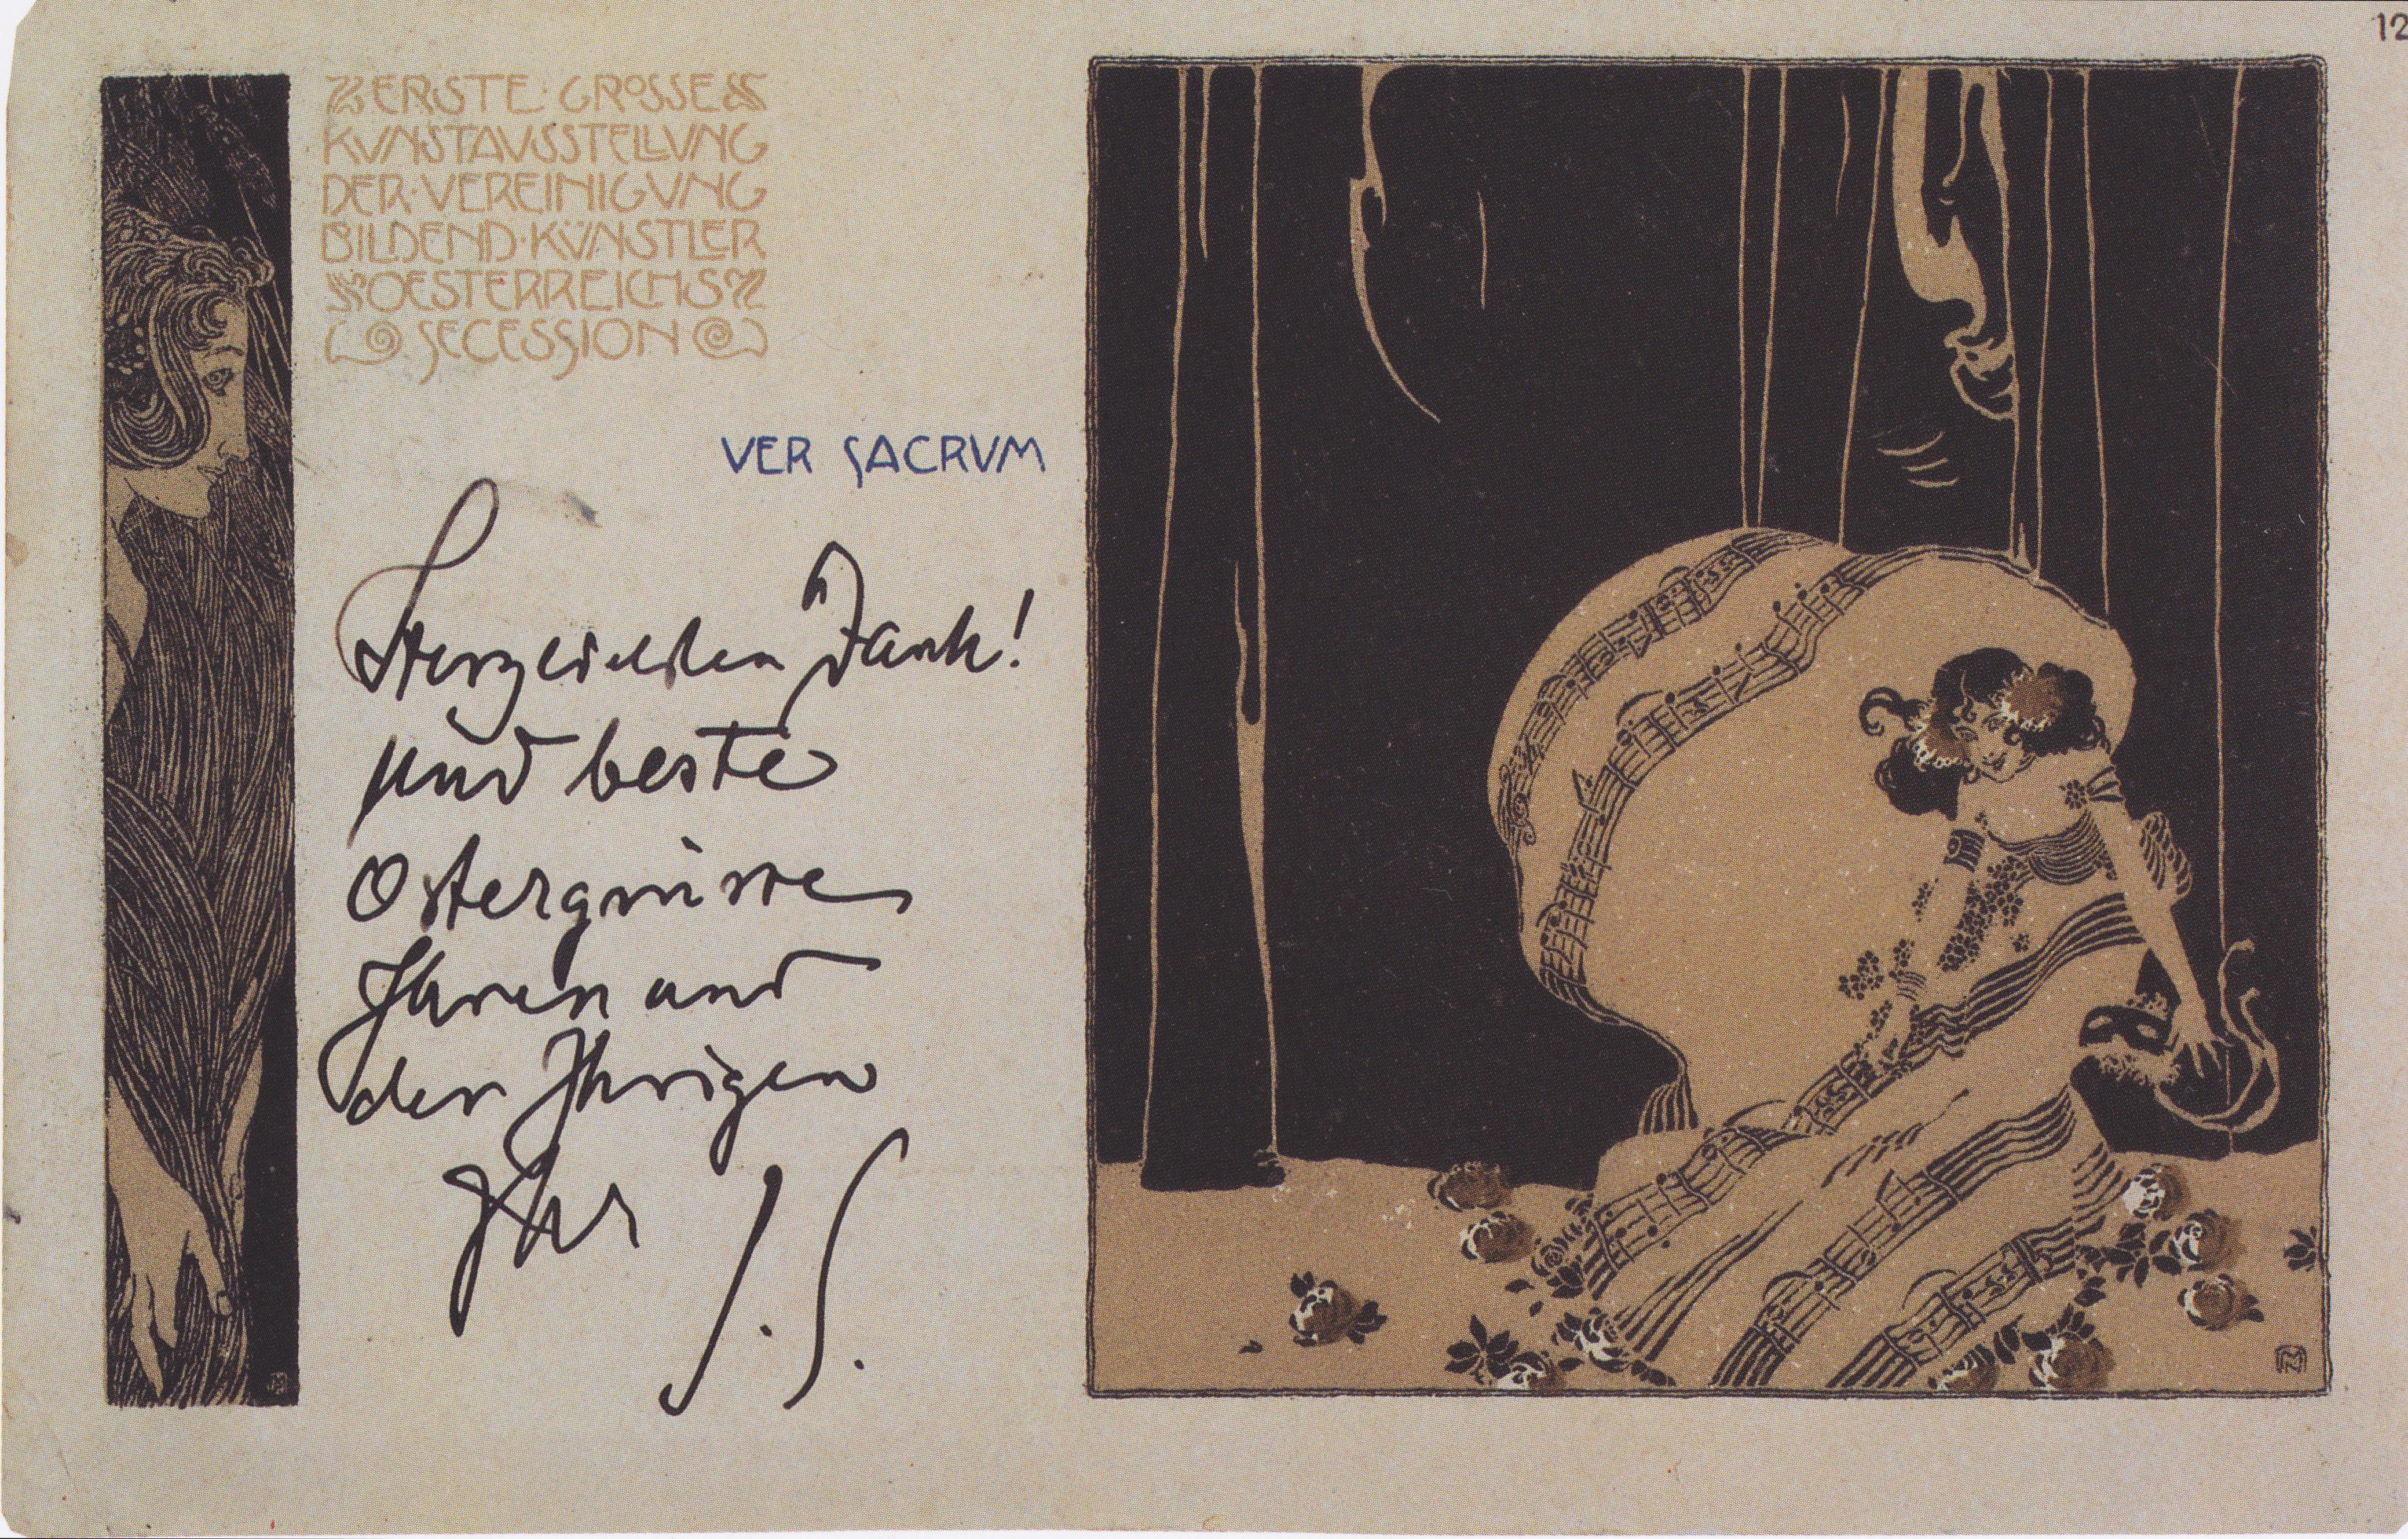 12
ERSTE · GROSSE
KVNSTAVSSTELLVNG
DER · VEREINIGVNG
BILDEND · KV̈NSTLER
OESTERREICHS
SECESSION
VER SACRVM
Herzlichsten Dank!
und beste
Ostergrüsse
Ihnen und
den Ihrigen
Ihr J. S.